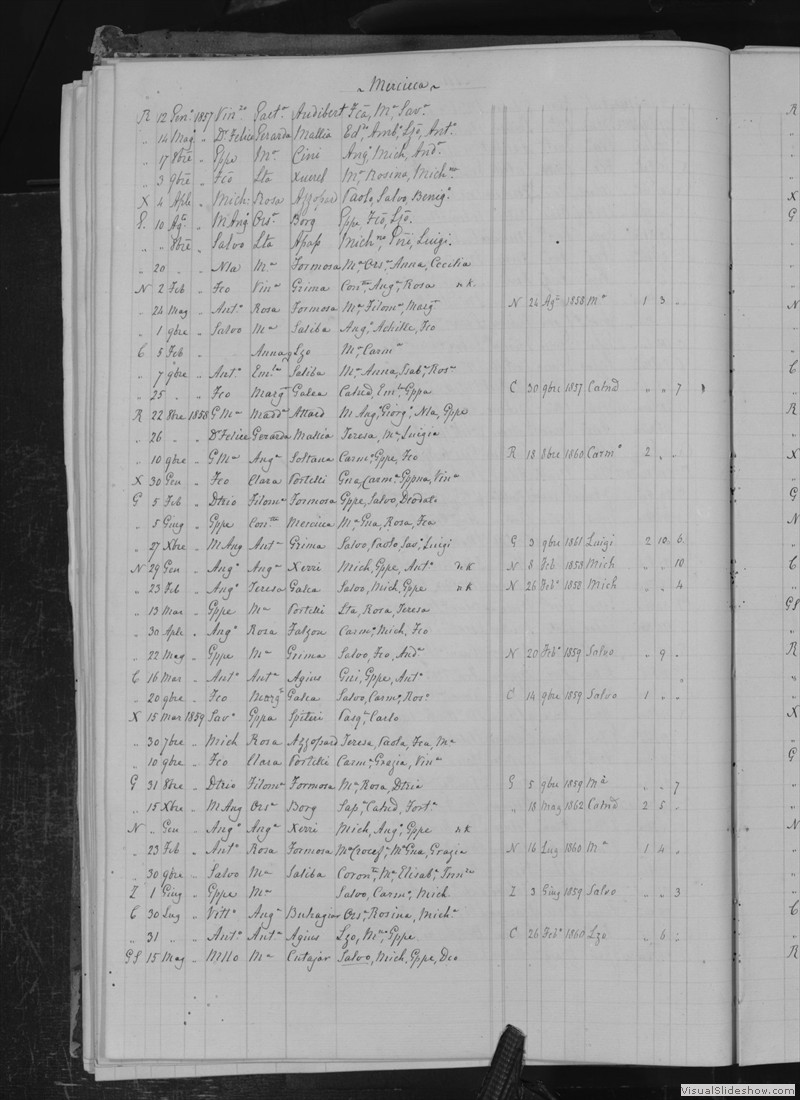 ~ Mercieca ~
R 12 Genº 1857 Vinzo Gaetª Audibert Fca, Mª Savª
" 14 Magº " Dr Felice Gerarda Mallia Edº Ambº Lzo, Antº
" 17 8bre " Gppe Mª Cini Angº Mich, Andª
" 3 9bre " Fco Lta Xuereb Mª Rosina, Michna
X 4 Aple " Mich: Rosa Azzopard Paolo, Salvo, Benigº
S. 10 Agº " M Angº Orsª Borg Gppe, Fco, Lzo.
" " 8bre " Salvo Lta Apap Mich, Luigi.
" 20 " " Nla Mª Formosa Mª Orsª Anna, Cecilia
N 2 Feb " Fco Vinª Grima Conª Angª Rosa nk.
" 24 Mag " Antº Rosa Formosa Mª Filomª Margª N 24 Agº 1858 Mª 1 3 "
" 1 9bre " Salvo Mª Saliba Angº Achille, Fco
C 5 Feb " Anna Lzo Mª Carmª
" 7 9bre " Antº Emlª Saliba Mª Anna, Isabª Rosª
" 25 " " Fco Margª Galea Catnd, Emlª Gppa C 30 9bre 1857 Catnd " " 7
R 22 8bre 1858 G Mª Maddª Attard M Angº Giorgº Nla, Gppe
" 26 " " Dr Felice Gerarda Mallia Teresa, Mª Luigia
" 10 9bre " G Mª Angª Soltana Carmº Gppe, Fco R 18 8bre 1860 Carmº 2 " "
X 30 Gen " Fco Clara Portelli Gna, Carmª Gppna, Vinª
G 5 Feb " Dtrio Filomª Formosa Gppe, Salvo, Deodato
" 5 Giug " Gppe Conta Mercieca Mª Gna, Rosa, Fca
" 27 Xbre " M Ang Antª Grima Salvo, Paolo, Savº Luigi G 3 9bre 1861 Luigi 2 10 6
N 29 Gen " Angº Angª Xerri Mich, Gppe, Antº nk N 8 Feb 1858 Mich " " 10
" 23 Feb " Angº Teresa Galea Salvo, Mich, Gppe nk N 26 Febº 1858 Mich " " 4
" 13 Mar " Gppe Mª Portelli Lta, Rosa, Teresa
" 30 Aple " Angº Rosa Falzon Carmº Mich, Fco
" 22 Mag " Gppe Mª Grima Salvo, Fco, Andª N 20 Febº 1859 Salvo " 9 "
C 16 Mar " Antº Antª Agius Gni, Gppe, Antº
" 20 9bre " Fco Margª Galea Salvo, Carmº Rosª C 14 9bre 1859 Salvo 1 " "
X 15 Mar 1859 Savº Gppa Spiteri Pasqº Carlo
" 30 7bre " Mich Rosa Azzopard Teresa, Paola, Fca, Mª
" 10 9bre " Fco Clara Portelli Carmª Grazia, Vinª
G 31 8bre " Dtrio Filomª Formosa Mª Rosa, Dtria G 5 9bre 1859 Mª " " 7
" 15 Xbre " M Ang Orsª Borg Sapª Catnd, Fortª " 18 Mag 1862 Catnd 2 5 "
N " Gen " Angº Angª Xerri Mich, Angº Gppe nk
" 23 Feb " Antº Rosa Formosa Mª Crocefª Mª Gna, Grazia N 16 Lug 1860 Mª 1 4 "
" 30 9bre " Salvo Mª Saliba Coronª Mª Elisabª
Z 1 Giug " Gppe Mª Salvo, Carmº Mich Z 3 Giug 1859 Salvo " " 3
C 30 Lug " Vittº Angª Buhagiar Orsª Rosina, Michª
" 31 " " Antº Antª Agius Lzo, Mª Gppe C 26 Febº 1860 Lzo " 6 "
GS 15 Mag " Nlllo Mª Cutajar Salvo, Mich, Gppe, Dco
R
X
G
N
C
R
X
G
N
C
GS
R
X
G
N
C
R
VisualSlideshow.com